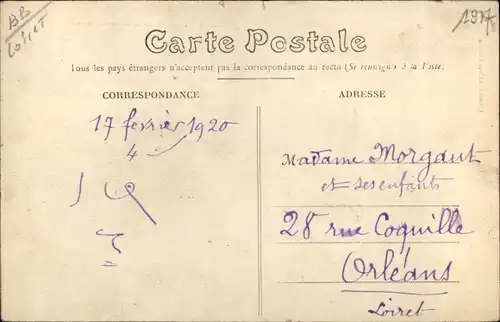 BB
Loiret
Carte Postale
Tous les pays étrangers n'acceptent pas la correspondance au recto (Se renseigner à la Poste)
CORRESPONDANCE
ADRESSE
17 février 1920
4
Madame Morgaut
et ses enfants
28 rue Coquille
Orléans
Loiret